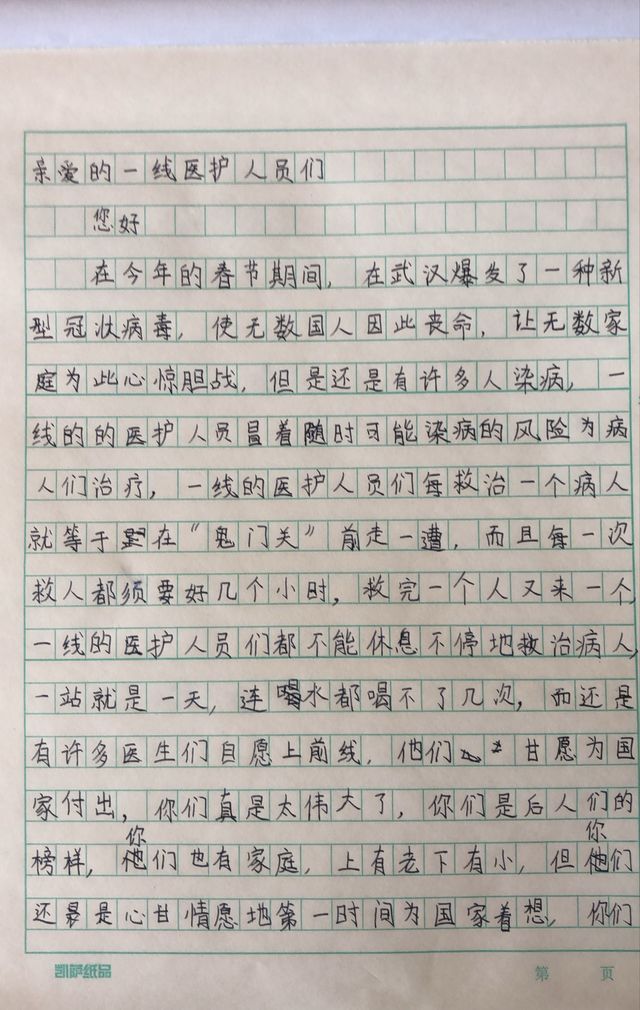 亲爱的一线医护人员们
您好
在今年的春节期间，在武汉爆发了一种新
型冠状病毒，使无数国人因此丧命，让无数家
庭为此心惊胆战，但是还是有许多人染病，一
线的的医护人员冒着随时可能染病的风险为病
人们治疗，一线的医护人员们每救治一个病人
就等于是在“鬼门关”前走一遭，而且每一次
救人都须要好几个小时，救完一个人又来一个，
一线的医护人员们都不能休息不停地救治病人，
一站就是一天，连喝水都喝不了几次，而还是
有许多医生们自愿上前线，他们甘愿为国
家付出，你们真是太伟大了，你们是后人们的
榜样，你们也有家庭，上有老下有小，但你们
还是心甘情愿地第一时间为国家着想，你们
凯萨纸品
第 页